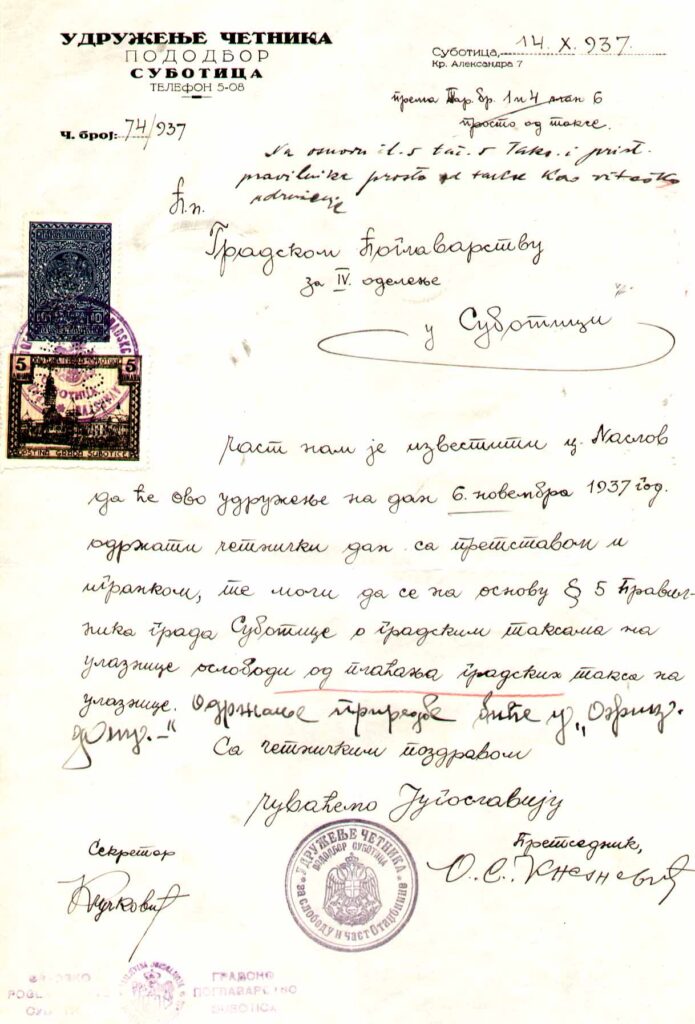 УДРУЖЕЊЕ ЧЕТНИКА
ПОДОДБОР
СУБОТИЦА
ТЕЛЕФОН 5-08
Ч. број: 74/937
Суботица, 14. X. 937.
Кр. Александра 7
према Тар. бр. 1 и 4 6
просто од таксе.
Na osnovu čl. 5 tač. 5 Taks. i
pravilnika prosto od takse kao viteško
udruženje
Гр. п.
Градском Поглаварству
за IV. оделење
у Суботици
5 5
OPŠTINA GRADA SUBOTICE
Част нам је известити ц. Наслов
да ће ово удружење на дан 6. новембра 1937 год.
одржати четнички дан са претставом и
игранком, те моли да се на основу § 5 Правил-
ника града Суботице о градским таксама на
улазнице ослободи од плаћања градских такса на
улазнице. Одржање приредбе биће у
Са четничким поздравом
чуваћемо Југославију
Секретар
Претседник,
УДРУЖЕЊЕ ЧЕТНИКА
ПОДОДБОР СУБОТИЦА
за слободу и част Отаџбине
ГРАДСКО
ПОГЛАВАРСТВО
SUBOTICA